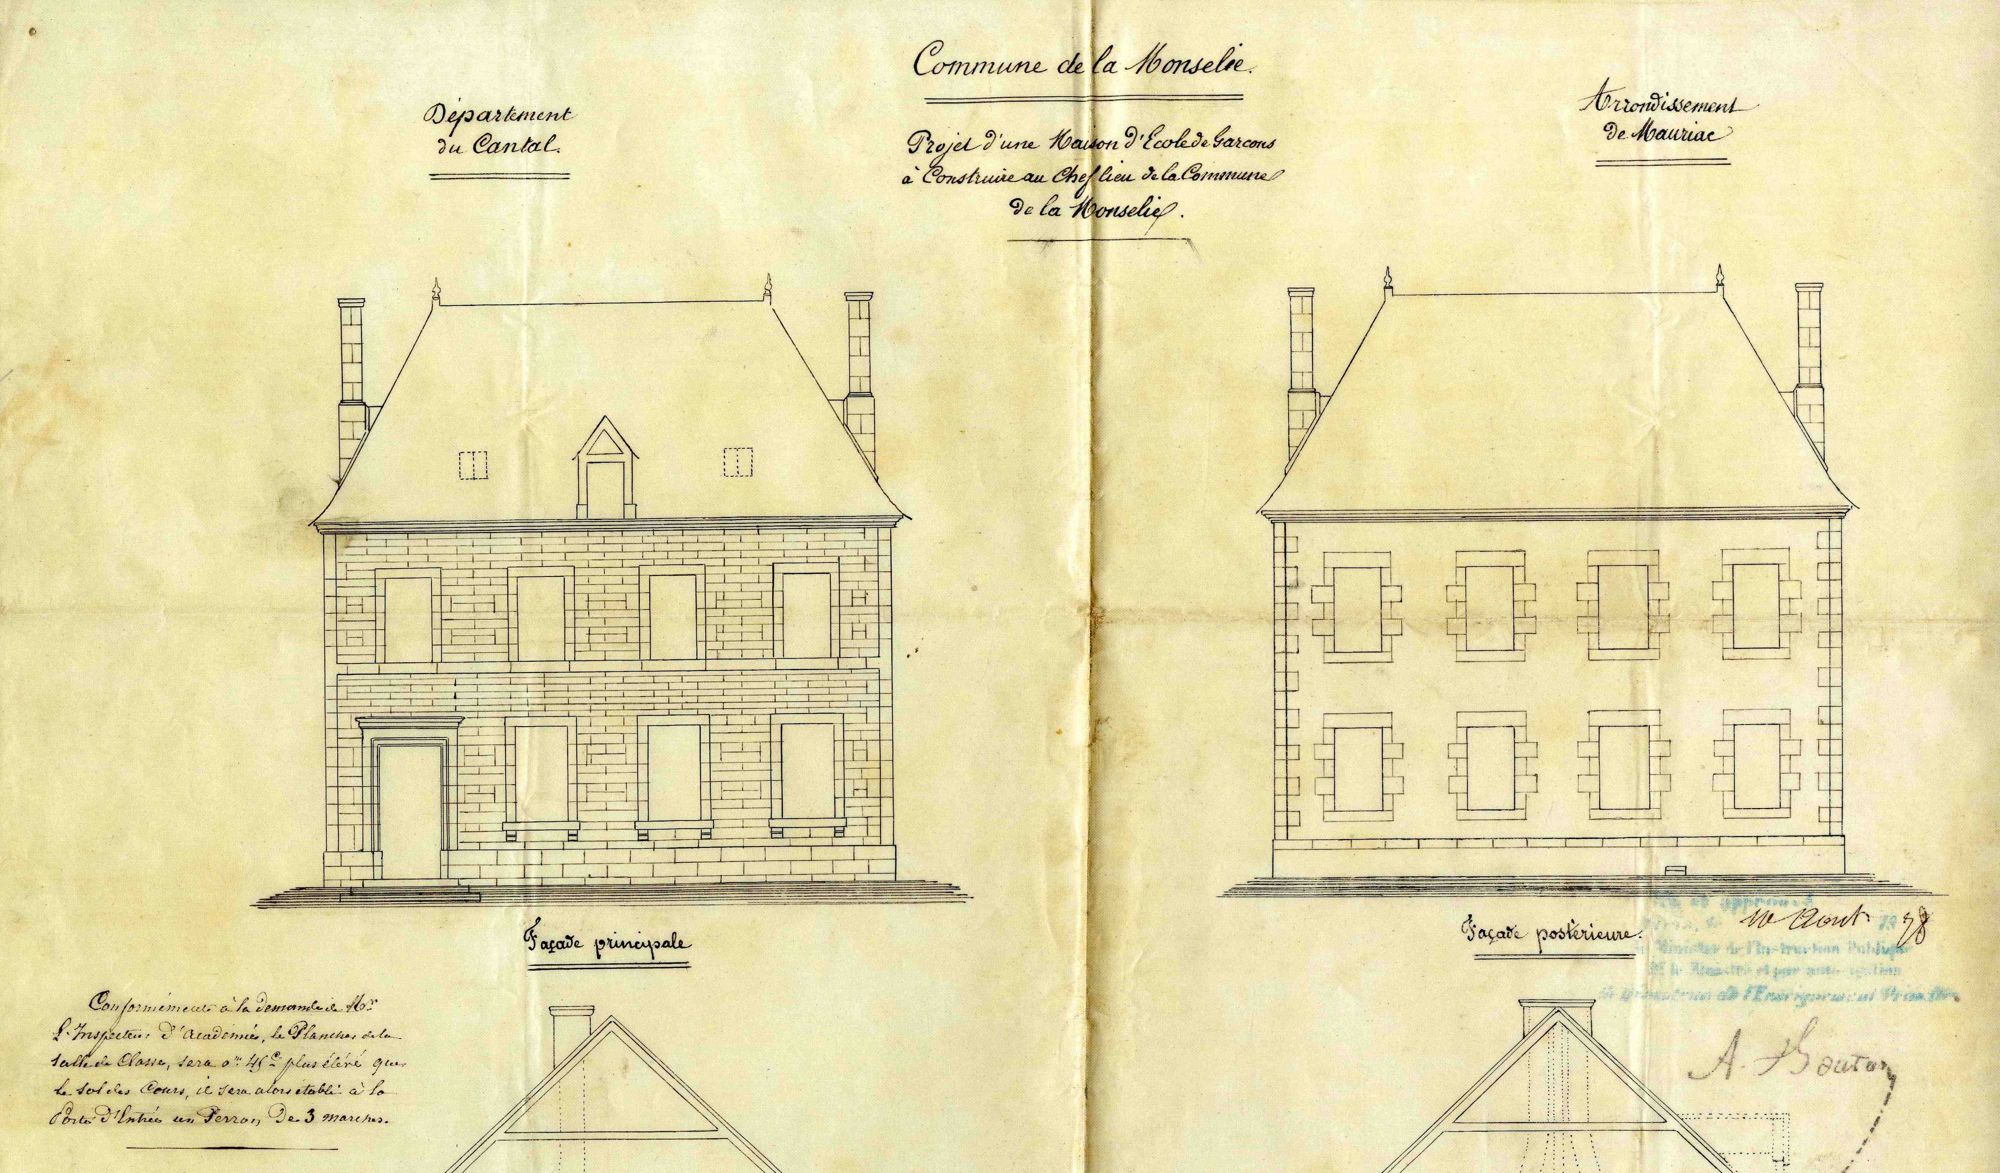 Commune de la Monselie.
Département
du Cantal.
Arrondissement
de Mauriac
Projet d'une Maison d'Ecole de Garcons
à Construire au Chef lieu de la Commune
de la Monselie.
Façade principale
Façade postérieure.
10 Aout 1878
Ministre de l'Instruction Publique
de l'Enseignement Primaire
Conformément à la demande de Mr
L'Inspecteur d'Académie, le Plancher de la
Salle de Classe, sera 0m 45c plus élévé que
le sol des Cours, il sera alors établi à la
Porte d'Entrée un Perron De 3 marches.